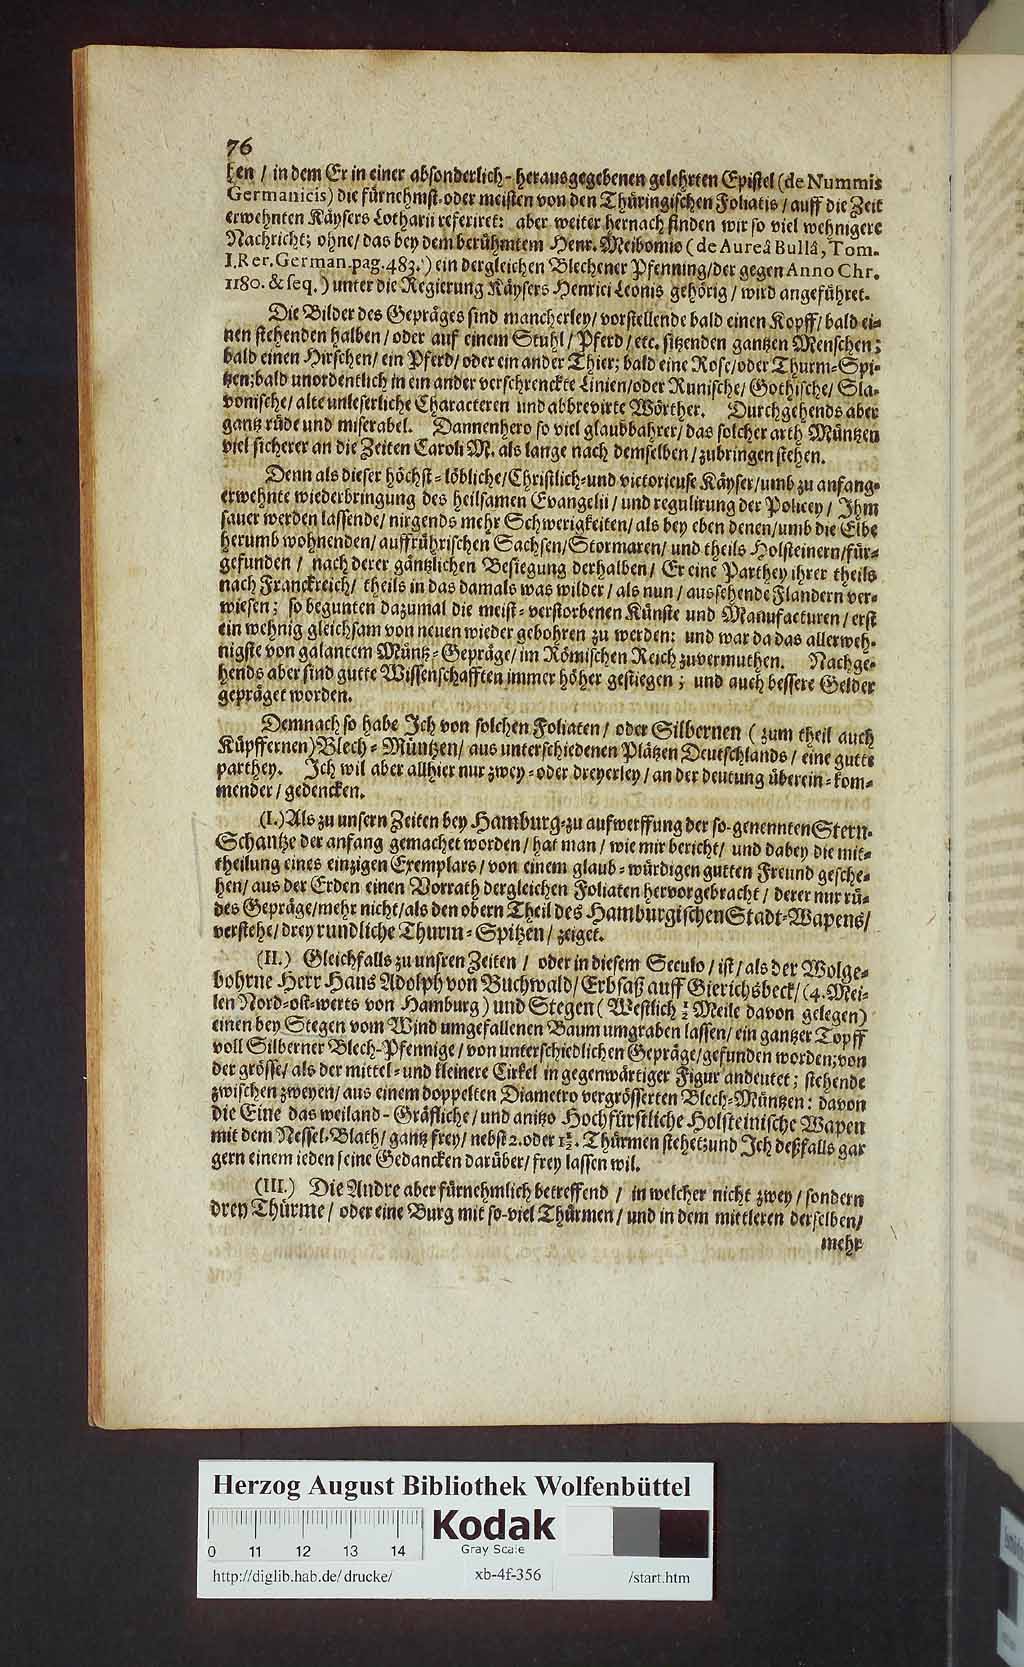 76
ken / in dem Er in einer absonderlich-herausgegebenen gelehrten Epistel (de Nummis
Germanicis) die fürnehmst-oder meisten von den Thüringischen Foliatis / auff die Zeit
erwehnten Käysers Lotharii referiret: aber weiter hernach finden wir so viel wehnigere
Nachricht; ohne / das bey dem berühmtem Henr. Meibomio (de Aureâ Bullâ, Tom.
I. Rer. German. pag. 483.) ein dergleichen Blechener Pfenning / der gegen Anno Chr.
1180. & seq.) unter die Regierung Käysers Henrici Leonis gehörig / wird angeführet.
Die Bilder des Gepräges sind mancherley / vorstellende bald einen Kopff / bald ei-
nen stehenden halben / oder auf einem Stuhl / Pferd / etc. sitzenden gantzen Menschen;
bald einen Hirschen / ein Pferd / oder ein ander Thier; bald eine Rose / oder Thurm-Spi-
tzen; bald unordentlich in ein ander verschrenckte Linien / oder Runische / Gothische / Sla-
vonische / alte unleserliche Characteren und abbrevirte Wörther. Durchgehends aber
gantz rüde und miserabel. Dannenhero so viel glaubbahrer / das solcher arth Müntzen
viel sicherer an die Zeiten Caroli M. als lange nach demselben / zubringen stehen.
Denn als dieser höchst-löbliche / Christlich-und victorieuse Käyser / umb zu anfang-
erwehnte wiederbringung des heilsamen Evangelii / und regulirung der Policey / Ihm
sauer werden lassende / nirgends mehr Schwerigkeiten / als bey eben denen / umb die Elbe
herumb wohnenden / auffrührischen Sachsen / Stormaren / und theils Holsteinern / für-
gefunden / nach derer gäntzlichen Besiegung derhalben / Er eine Parthey ihrer theils
nach Franckreich / theils in das damals was wilder / als nun / aussehende Flandern ver-
wiesen; so begunten dazumal die meist-verstorbenen Künste und Manufacturen / erst
ein wehnig gleichsam von neuen wieder gebohren zu werden: und war da das allerweh-
nigste von galantem Müntz-Gepräge / im Römischen Reich zuvermuthen. Nachge-
hends aber sind gutte Wissenschafften immer höher gestiegen; und auch bessere Gelder
gepräget worden.
Demnach so habe Ich von solchen Foliaten / oder Silbernen (zum theil auch
Küpffernen) Blech-Müntzen / aus unterschiedenen Plätzen Deutschlands / eine gutte
parthey. Ich wil aber allhier nur zwey-oder dreyerley / an der deutung überein-kom-
mender / gedencken.
(I.) Als zu unsern Zeiten bey Hamburg-zu aufwerffung der so-genennten Stern-
Schantze der anfang gemachet worden / hat man / wie mir bericht / und dabey die mit-
theilung eines einzigen Exemplars / von einem glaub-würdigen gutten Freund gesche-
hen / aus der Erden einen Vorrath dergleichen Foliaten hervorgebracht / derer nur rü-
des Gepräge / mehr nicht / als den obern Theil des Hamburgischen Stadt-Wapens /
verstehe / drey rundliche Thurm-Spitzen / zeiget.
(II.) Gleichfalls zu unsren Zeiten / oder in diesem Seculo / ist / als der Wolge-
bohrne Herr Hans Adolph von Buchwald / Erbsaß auff Gierichsbeck / (4. Mei-
len Nord-ost-werts von Hamburg) und Stegen (Westlich ½ Meile davon gelegen)
einen bey Stegen vom Wind umgefallenen Baum umgraben lassen / ein gantzer Topff
voll Silberner Blech-Pfennige / von unterschiedlichen Gepräge / gefunden worden; von
der grösse / als der mittel-und kleinere Cirkel in gegenwärtiger Figur andeutet; stehende
zwischen zweyen / aus einem doppelten Diametro vergrösserten Blech-Müntzen: davon
die Eine das weiland-Gräfliche / und anitzo Hochfürstliche Holsteinische Wapen
mit dem Nessel-Blath / gantz frey / nebst 2. oder 1½. Thürmen stehet: und Ich deßfalls gar
gern einem ieden seine Gedancken darüber / frey lassen wil.
(III.) Die Andre aber fürnehmlich betreffend / in welcher nicht zwey / sondern
drey Thürme / oder eine Burg mit so-viel Thürmen / und in dem mittleren derselben /
mehr
Herzog August Bibliothek Wolfenbüttel
0 11 12 13 14
Kodak
Gray Scale
http://diglib.hab.de/drucke/ xb-4f-356 /start.htm